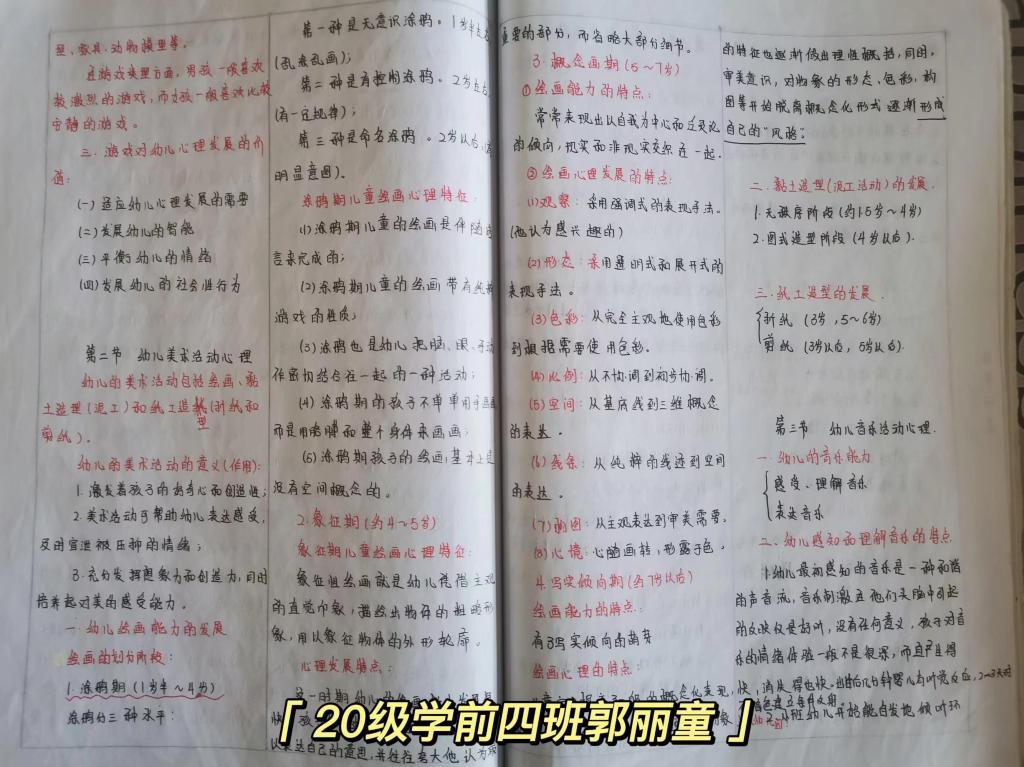 型、家具、动物模型等。
在游戏类型方面，男孩一般喜欢
较激烈的游戏，而女孩一般喜欢比较
安静的游戏。
三、游戏对幼儿心理发展的价
值：
(一) 适应幼儿心理发展的需要
(二) 发展幼儿的智能
(三) 平衡幼儿的情绪
(四) 发展幼儿的社会性行为
第二节 幼儿美术活动心理
幼儿的美术活动包括绘画、黏
土造型（泥工）和纸工造型（折纸和
剪纸）。
幼儿的美术活动的意义(作用)：
1. 激发着孩子的好奇心和创造性；
2. 美术活动可帮助幼儿表达感受，
及时宣泄被压抑的情绪；
3. 充分发挥想象力和创造力，同时
培养起对美的感受能力。
一、幼儿绘画能力的发展
绘画的划分阶段：
1. 涂鸦期（1岁半～4岁）
涂鸦的三种水平：
第一种是无意识涂鸦。1岁半左右
(乱来乱画)；
第二种是有控制涂鸦。2岁左右
(有一定规律)；
第三种是命名涂鸦。2岁以后
明显意图)。
涂鸦期儿童绘画心理特征：
(1) 涂鸦期儿童的绘画是伴随
言来完成的；
(2) 涂鸦期儿童的绘画带有纯粹
游戏的性质；
(3) 涂鸦也是幼儿把脑、眼、手动
作密切结合在一起的一种活动；
(4) 涂鸦期的孩子不单单用手画画
而是用胳膊和整个身体来画画；
(5) 涂鸦期孩子的绘画，基本上是
没有空间概念的。
2. 象征期（约4～5岁）
象征期儿童绘画心理特征：
象征性绘画就是幼儿凭借主观
的直觉印象，描绘出物体的粗略形
象，用以象征物体的外形轮廓。
心理发展特点：
这一时期幼儿的绘画
以表达自己的意思，并往往夸大他认为
重要的部分，而省略大部分细节。
3. 概念画期（5～7岁）
①绘画能力的特点：
常常表现出以自我为中心和泛灵论
的倾向，现实和非现实交织在一起。
②绘画心理发展的特点：
(1) 观察：采用强调式的表现手法。
(他认为感兴趣的)
(2) 形态：采用透明式和展开式的
表现手法。
(3) 色彩：从完全主观地使用色彩
到根据需要使用色彩。
(4) 比例：从不协调到初步协调。
(5) 空间：从基底线到三维概念
的表达。
(6) 线条：从纯粹的线迹到空间
的表达。
(7) 构图：从主观表达到审美需要。
(8) 心境：心随画转，形露于色。
4. 写实倾向期（约7岁以后）
绘画能力的特点：
有了写实倾向的萌芽
绘画心理的特点：
的概念化表现，
的特征也逐渐做出理性概括，同时，
审美意识，对物象的形态、色彩，构
图等开始脱离概念化形式逐渐形成
自己的“风格”。
二、黏土造型（泥工活动）的发展.
1. 无秩序阶段（约1.5岁～4岁）
2. 图式造型阶段（4岁以后）.
三、纸工造型的发展.
折纸（3岁，5～6岁）
剪纸（3岁以后，5岁以后）.
第三节 幼儿音乐活动心理.
一、幼儿的音乐能力
感受、理解音乐
表达音乐
二、幼儿感知和理解音乐的特点
1. 幼儿最初感知的音乐是一种和谐
的声音流，音乐刺激在他们头脑中引起
的反映仅是好听，没有任何意义，孩子对音
乐的情绪体验一般不是很深，而且产生得
快，消失得也快。出生后几分钟婴儿有听觉反应，2～3天对
开始能自发地倾听环
「 20级学前四班郭丽童 」